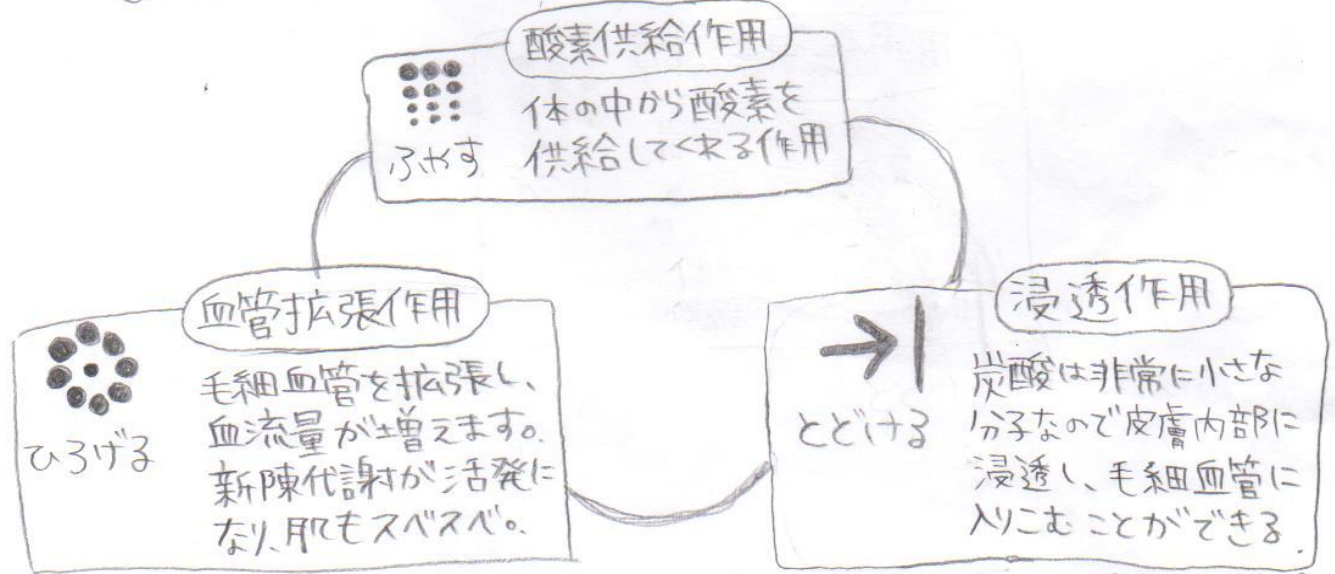 酸素供給作用
ふやす
体の中から酸素を
供給してくれる作用
血管拡張作用
ひろげる
毛細血管を拡張し、
血流量が増えます。
新陳代謝が活発に
なり、肌もスベスベ。
浸透作用
とどける
炭酸は非常に小さな
分子なので皮膚内部に
浸透し、毛細血管に
入りこむことができる.